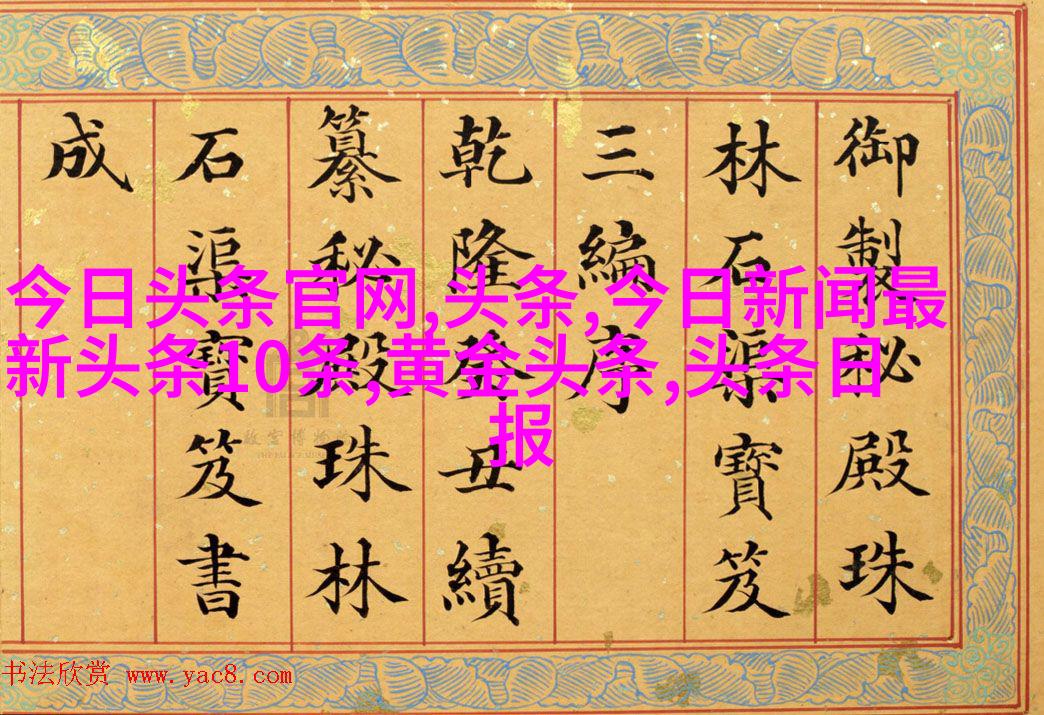 御製秘殿珠
林石渠寶笈
三編序
乾隆癸丑續
纂秘殿珠林
石渠寶笈書
成
今日头条官网,头条,今日新闻最
新头条10条,黄金头条,头条日
报
书法欣赏 www.yac8.com